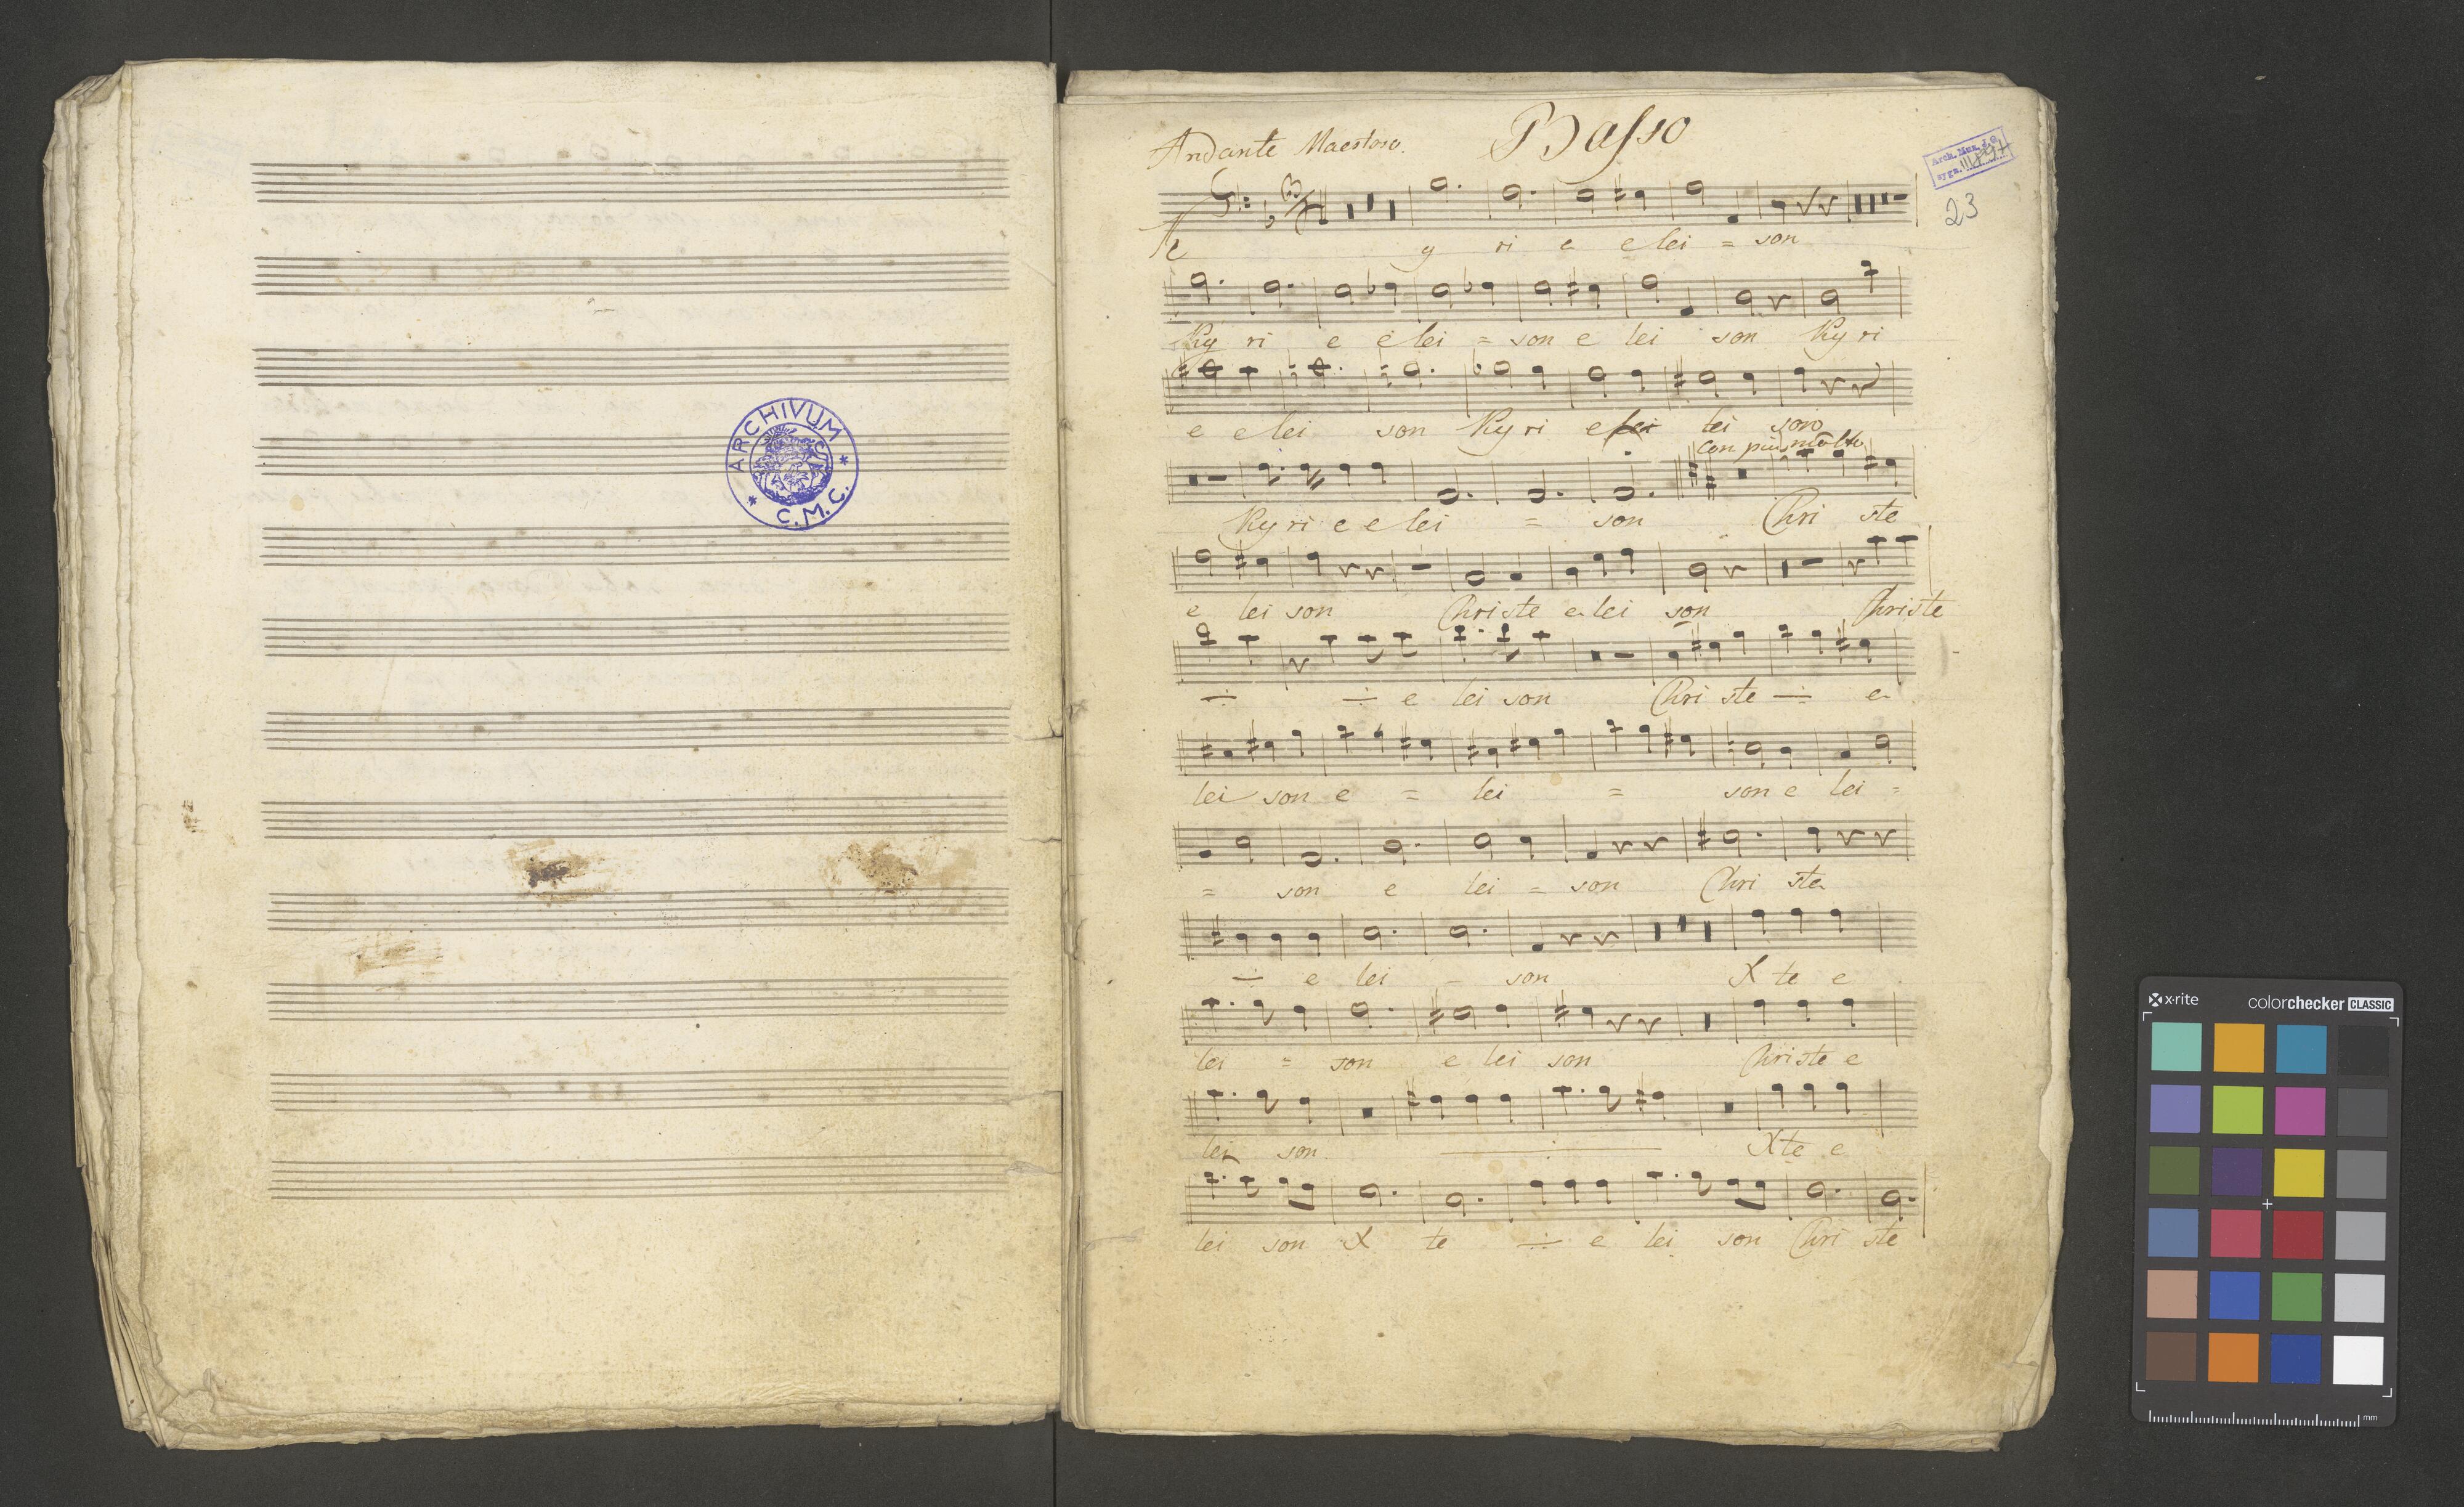 ARCHIVUM * C.M.C. *
Basso
Andante Maestoso.
Arch. Muz. J.G.
sygn. III
23
Ky ri e e lei = son
Ky ri e e lei = son e lei son Ky ri
e e lei son Ky ri e lei son
con più molto
Ky ri e e lei = son Chri ste
e lei son Christe e lei son Christe
÷ ÷ e lei son Chri ste ÷ e
lei son e = lei = son e lei =
= son e lei = son Chri ste
÷ e lei - son X te e
lei = son e lei son Christe e
lei son ÷ Xte e
lei son X te ÷ e lei son Chri ste
x·rite colorchecker CLASSIC
mm